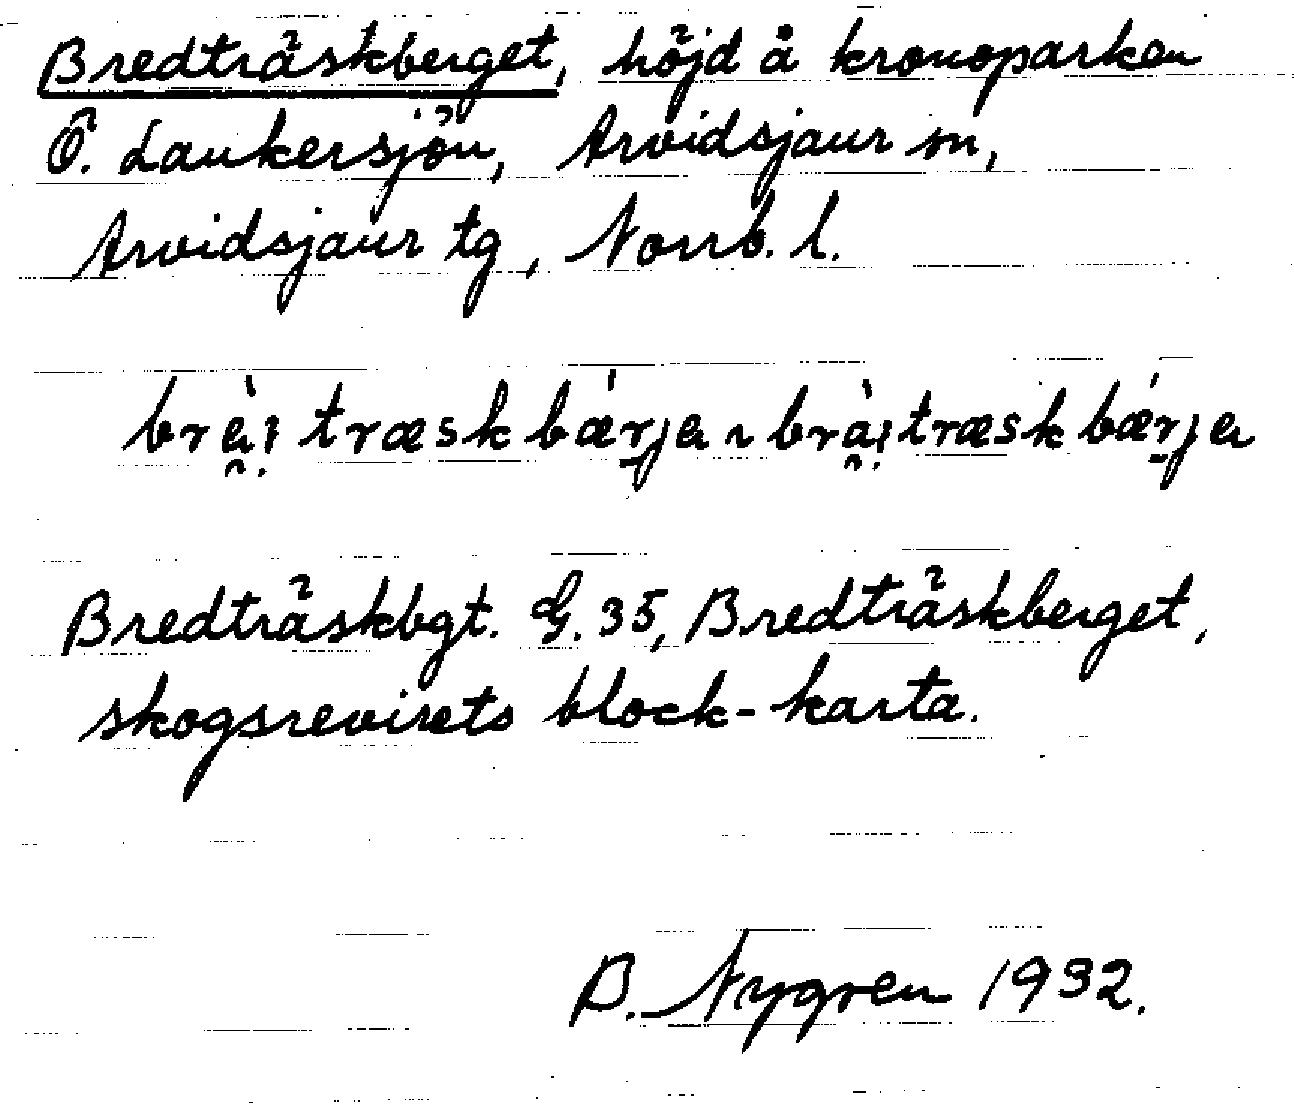 Bredträskberget, höjd å kronoparken
Ö. Laukersjön, Arvidsjaur sn,
Arvidsjaur tg, Norrb. l.
brḛ̀i̩ træsk bǽr̠ja ~ brà̰i̩træsk bǽr̠ja
Bredträskbgt. G. 35, Bredträskberget,
skogsrevirets block-karta.
B. Nygren 1932.